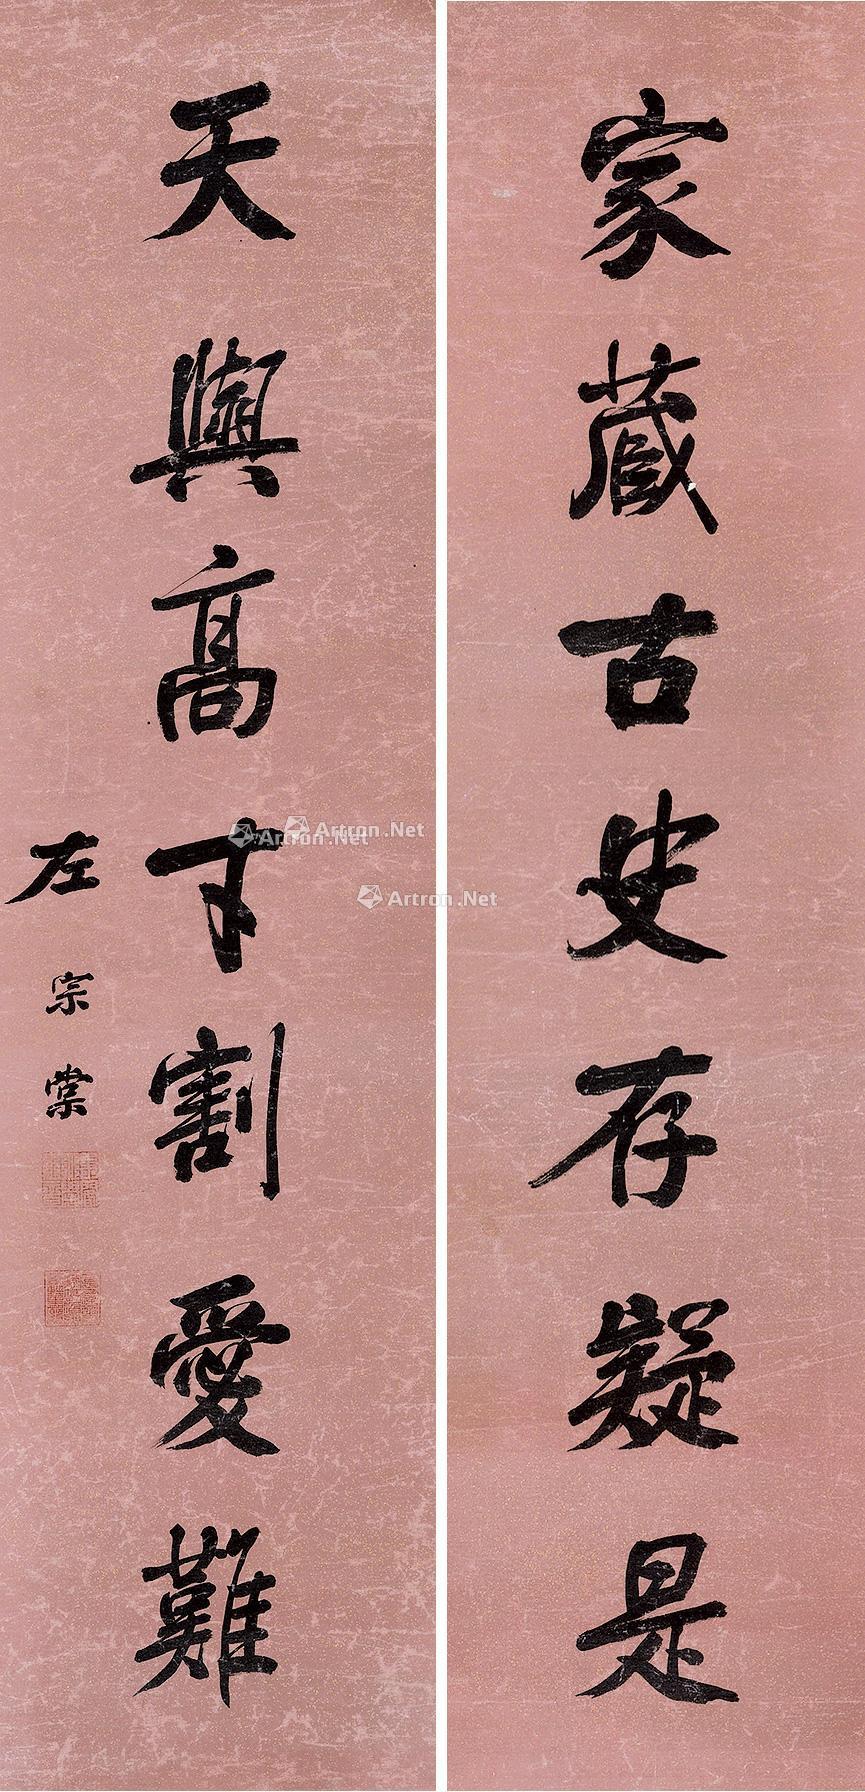 家藏古史存疑是
天與高才割愛難
左宗棠
Artron.Net
Artron.Net
Artron.Net